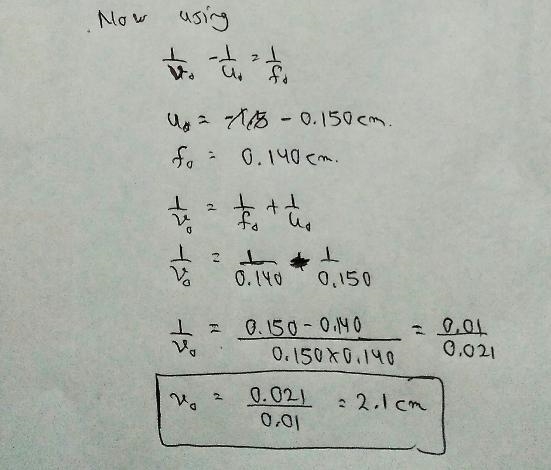 Now using
1/v₀ - 1/u₀ = 1/f₀
u₀ = - 0.150 cm.
f₀ = 0.140 cm.
1/v₀ = 1/f₀ + 1/u₀
1/v₀ = 1/0.140 1/0.150
1/v₀ = 0.150 - 0.140 / 0.150 x 0.140 = 0.01/0.021
v₀ = 0.021/0.01 = 2.1 cm